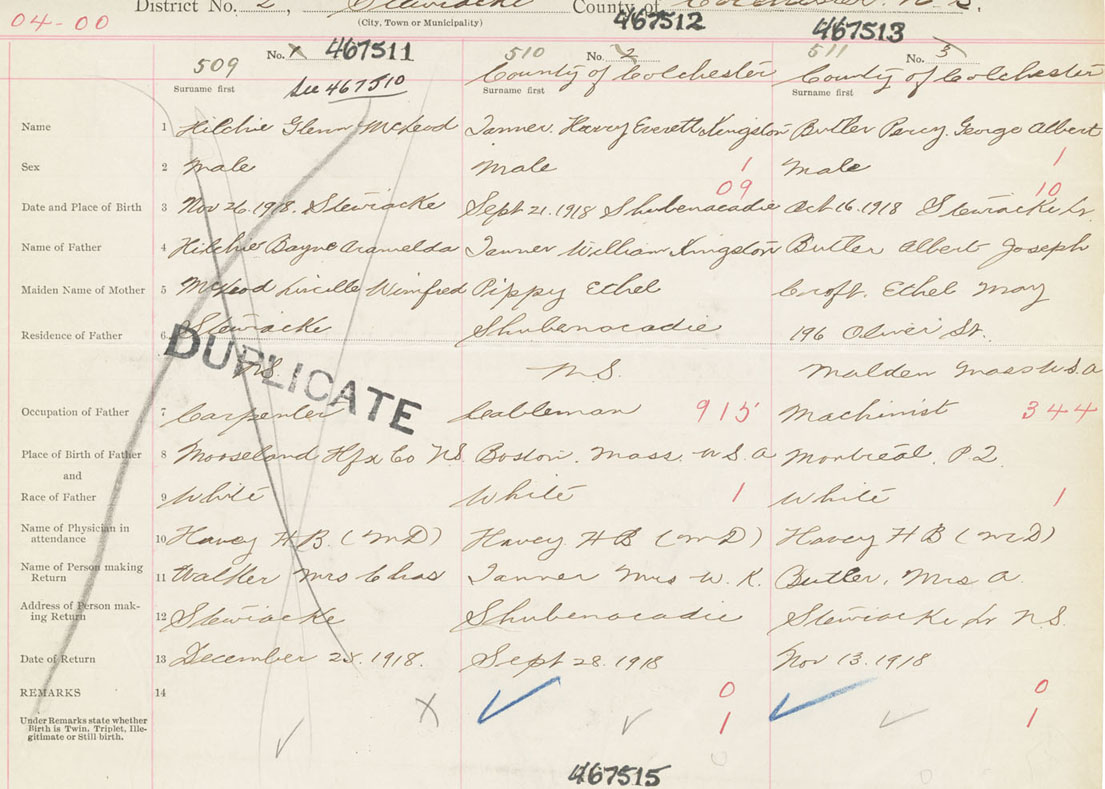 District No. 2, Stewiacke County of Colchester. N.S.
(City, Town or Municipality)
04-00
467512 467513
No. 467511 No. 2 No. 3
509 510 511
See 467510 County of Colchester County of Colchester
Surname first Surname first Surname first
Name 1 Hilchie Glenn McLeod Tanner. Harry Everett Kingston Butler Percy George Albert
Sex 2 Male Male 1 Male 1
09 10
Date and Place of Birth 3 Nov 26.1918. Stewiacke Sept 21.1918 Shubenacadie Oct 16.1918 Stewiacke Lr.
Name of Father 4 Hilchie Bayne Aramelda Tanner William Kingston Butler Albert Joseph
Maiden Name of Mother 5 McLeod Lucille Winifred Pippy Ethel Croft. Ethel May
Residence of Father 6 Stewiacke Shubenacadie 196 Oliver St.
DUPLICATE
N.S. N.S. Malden Mass U.S.A
Occupation of Father 7 Carpenter Cableman 915 Machinist 344
Place of Birth of Father 8 Mooseland Hfx Co N.S. Boston. Mass. U.S.A Montreal. P.Q.
and
Race of Father 9 White White 1 White 1
Name of Physician in
attendance 10 Havey H B (M D) Havey H B (M D) Havey H B (M D)
Name of Person making
Return 11 Walker Mrs Chas Tanner Mrs W. K. Butler, Mrs A.
Address of Person mak-
ing Return 12 Stewiacke Shubenacadie Stewiacke Lr N.S.
Date of Return 13 December 28.1918. Sept 28.1918 Nov 13.1918
REMARKS 14 0 0
Under Remarks state whether
Birth is Twin, Triplet, Ille-
gitimate or Still birth. 1 1
467515